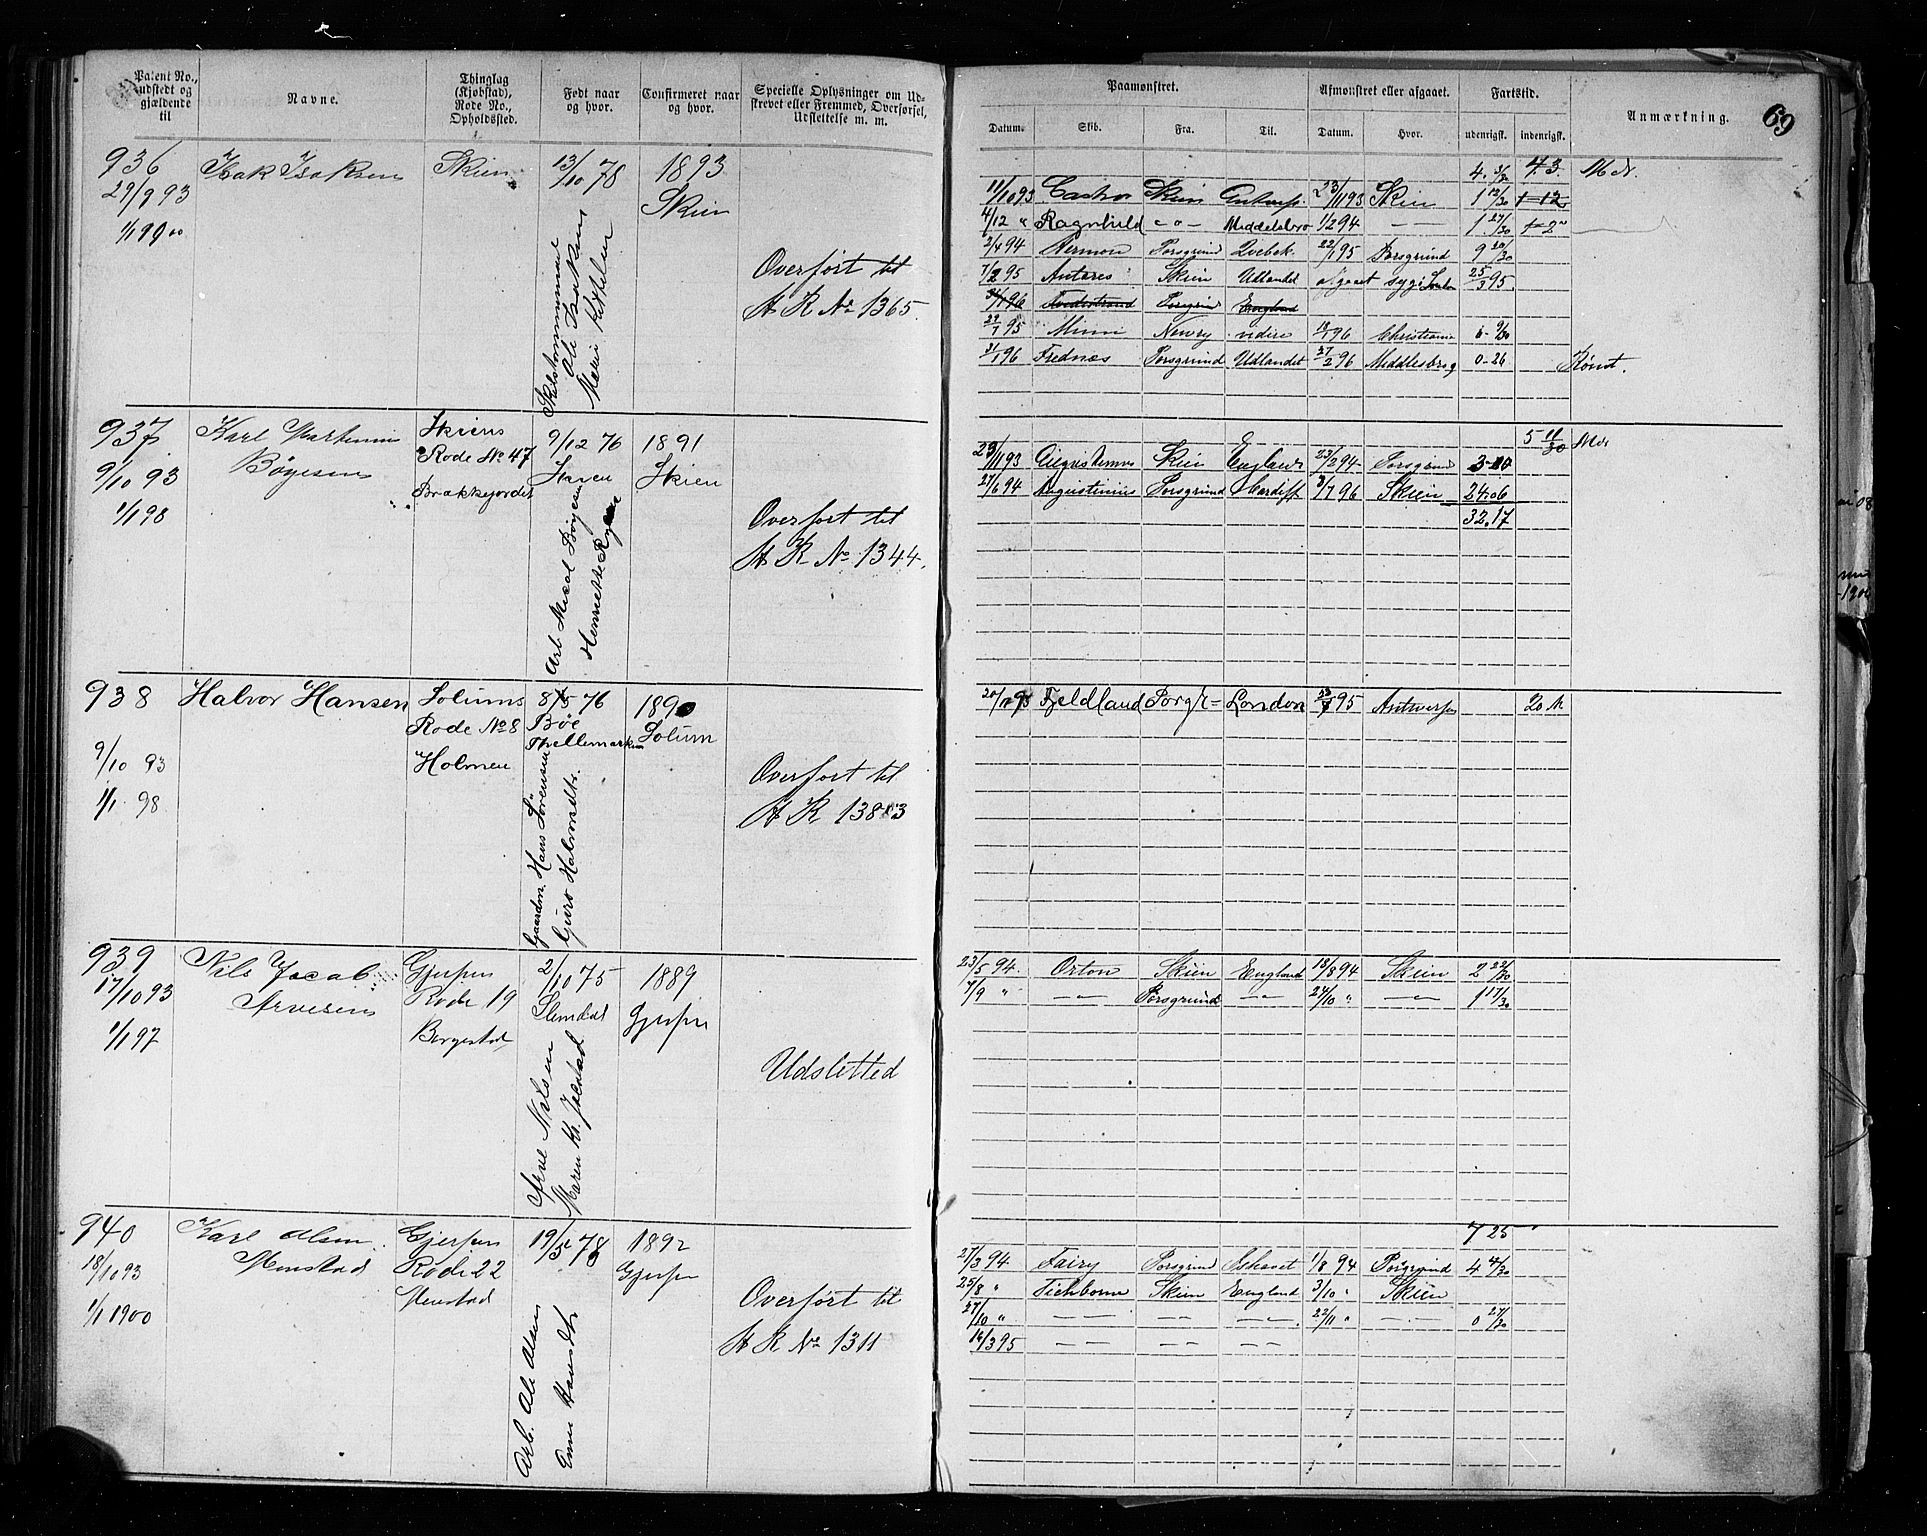 Patent No., udstedt og gjældende til
Navne.
Thinglag (Kjøbstad), Rode No., Opholdssted.
Født naar og hvor.
Confirmeret naar og hvor.
Specielle Oplysninger om Udskrevet eller Fremmed, Overførsel, Udslettelse m. m.
Paamønstret.
Afmønstret eller afgaaet.
Fartstid.
Anmærkning.
69
Datum. Skib. Fra. Til. Datum. Hvor. udenrigsk. indenrigsk.
936
29/9 93
1/1 1900
Isak Isaksen
Skien
13/10 78
Ole Isaksen
1893
Skien
Overført til
H R No 1365.
Mdr.
11/10 93 Castor Skien Antwerp. 23/11 93 Skien 1 12/30
4/12 " Ragnhild - " - Middelsbro 1/2 94 1 27/30
2/4 94 Porsgrund Qvebek 22/1 95 Porsgrund 9 20/30
7/2 95 Antares Skien Udlandet afgaaet syg 25/3 95.
Porsgrund England
22/7 95 Mimi Newry videre 18/1 96 Christiania
31/1 96 Frednæs Porsgrund Udlandet 27/2 96 Middlesbrog 0-26 Rømt.
937
9/10 93
1/1 98
Karl Martinius
Bøyesen
Skiens
Rode No 47
Brækkejordet
9/12 76
Skien
Arb. Bøyesen
Henriette
1891
Skien
Overført til
H R No 1344.
5 11/30 Mdr
29/11 93 Skien England 23/2 94 Porsgrund
27/6 94 Augustinius Porsgrund Cardiff 3/7 96 Skien 24.06
32.17
938
9/10 93
1/1 98
Halvor Hansen
Solums
Rode No 8
Holmen
8/5 76
Bøe
Thellemarken
Gaardm. Hans Sørensen
Guro Halvorsdtr.
1890
Solum
Overført til
H R 1383
Fjeldland Porsgr= London 95 Antwerpen 20 M
939
17/10 93
1/1 97
Nils Jacob
Arvesen
Gjerpen
Rode 19
Borgestad
2/10 75
Slemdal
Arve Nilsen
Maren K. Jacobsd
1889
Gjerpen
Udsletted
23/5 94. Orton Skien England 18/8 94 Skien 2 22/30
7/9 " - " - Porsgrund - " - 24/10 " - " - 1 17/30
940
18/10 93
1/1 1900
Karl Olsen
Menstad
Gjerpen
Rode 22
Menstad
19/5 78
Arb. Ole Olsen
Hansdtr
1892
Gjerpen
Overført til
H R No 1311
7 25
27/3 94. Fairy Porsgrund Ishavet 1/8 94 Porsgrund 4 4/30
25/8 " Tichborne Skien England 3/10 " Skien
27/10 " - " - - " - - " - 22/11 " - " - 0 27/30
14/3 95 - " - - " - - " -